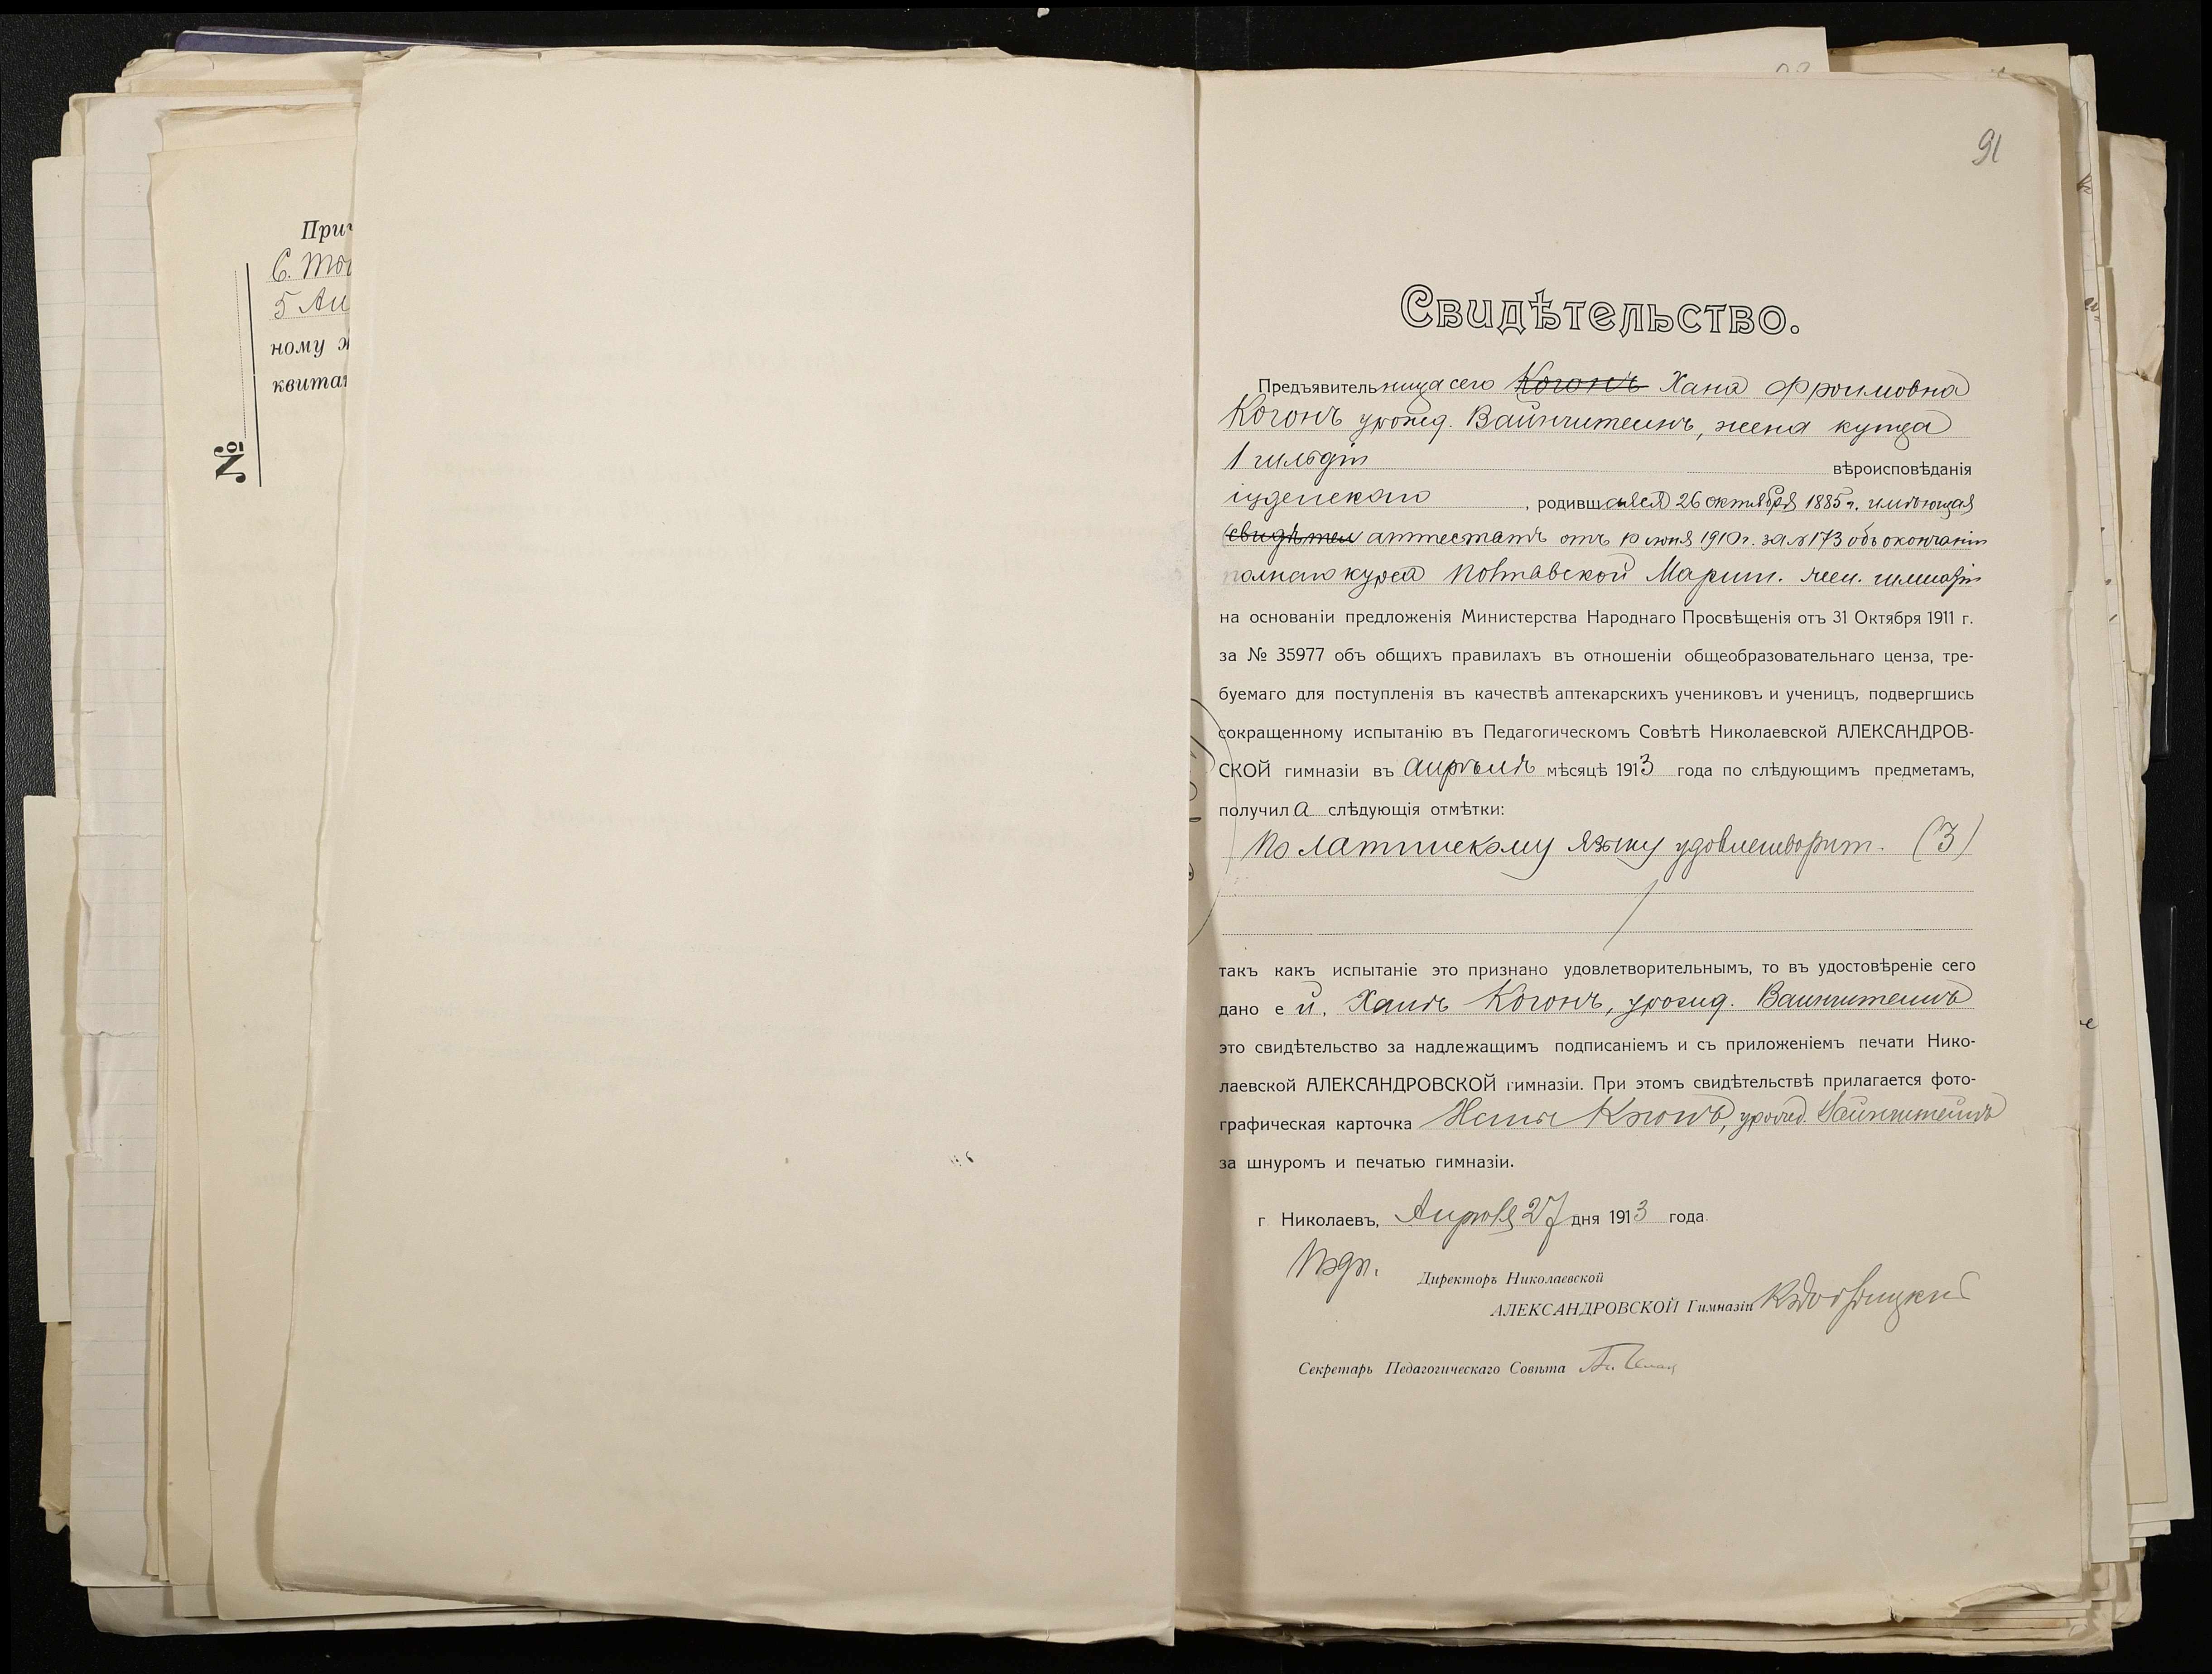 При
С. Мо
5 Ап
ному
квита
№
91
Свидѣтельство.
Предъявительница сего Когонъ Хана Фроимовна
Когонъ урожд. Вайнштейнъ, жена купца
1 гильдіи вѣроисповѣданія
іудейскаго, родившаяся 26 октября 1885 г. имѣющая
свидѣтел аттестатъ отъ 10 июня 1910 г. за № 173 объ окончаніи
полнаго курса Полтавской Маріин. жен. гимназіи
на основаніи предложенія Министерства Народнаго Просвѣщенія отъ 31 Октября 1911 г.
за № 35977 объ общихъ правилахъ въ отношеніи общеобразовательнаго ценза, тре-
буемаго для поступленія въ качествѣ аптекарскихъ учениковъ и ученицъ, подвергшись
сокращенному испытанію въ Педагогическомъ Совѣтѣ Николаевской АЛЕКСАНДРОВ-
СКОЙ гимназіи въ апрѣлѣ мѣсяцѣ 1913 года по слѣдующимъ предметамъ,
получила слѣдующія отмѣтки:
По латинскому языку удовлетворит. (3)
такъ какъ испытаніе это признано удовлетворительнымъ, то въ удостовѣреніе сего
дано ей, Ханѣ Когонъ, урожд. Вайнштейнъ
это свидѣтельство за надлежащимъ подписаніемъ и съ приложеніемъ печати Нико-
лаевской АЛЕКСАНДРОВСКОЙ гимназіи. При этомъ свидѣтельствѣ прилагается фото-
графическая карточка Ханы Когонъ, урожд. Вайнштейнъ
за шнуромъ и печатью гимназіи.
г. Николаевъ, Апрѣля 27 дня 1913 года.
Директоръ Николаевской
АЛЕКСАНДРОВСКОЙ Гимназіи
Секретарь Педагогическаго Совѣта